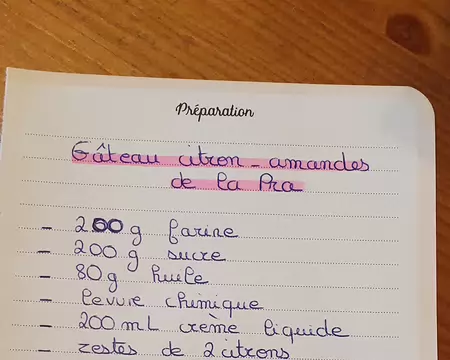 Préparation
Gâteau citron - amandes
de la Pra
- 200 g farine
- 200 g sucre
- 80 g huile
- levure chimique
- 200 mL crème liquide
- zestes de 2 citrons